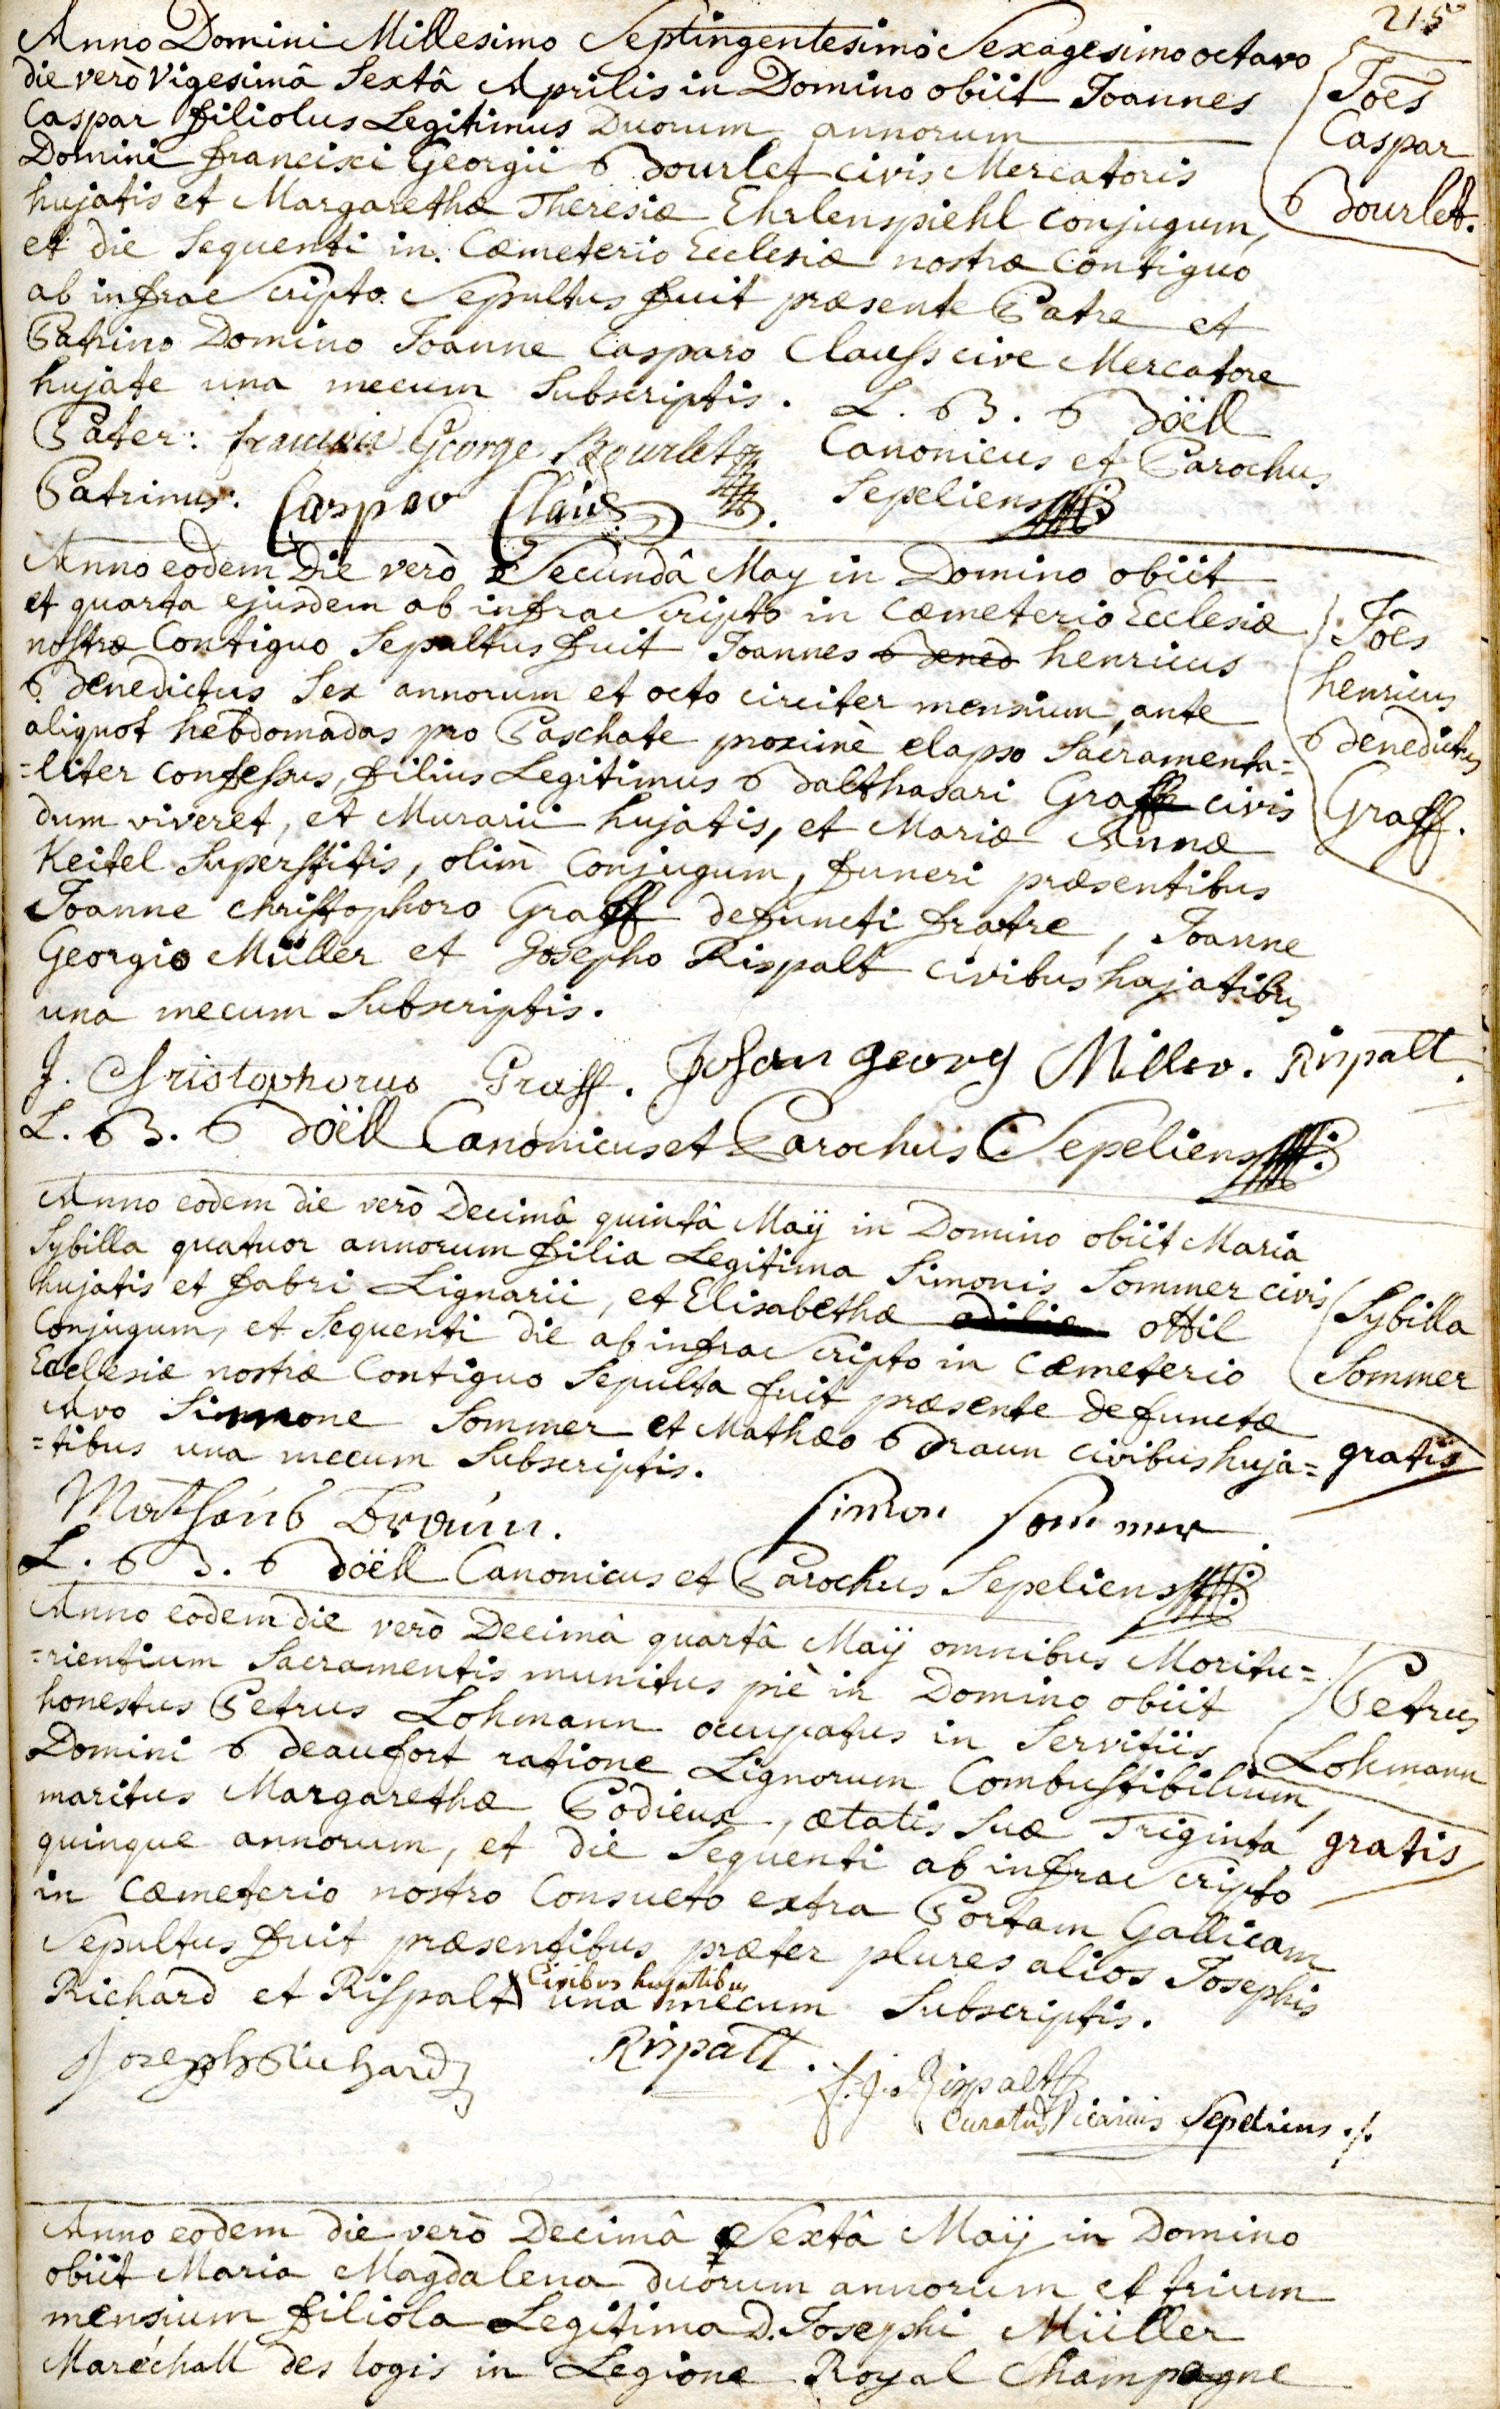 215
Anno Domini Millesimo Septingentesimo Sexagesimo octavo
die verò Vigesimâ Sextâ Aprilis in Domino obiit Joannes
Caspar filiolus Legitimus Duorum annorum
Domini francisci Georgii Bourlet civis Mercatoris
hujatis et Margarethæ Theresiæ Ehrlenspiehl conjugum,
et die Sequenti in Cæmeterio Ecclesiæ nostræ Contiguo
ab infrascripto Sepultus fuit præsente Patre et
Patrino Domino Joanne Casparo Clauss cive Mercatore
hujate una mecum Subscriptis. L. B. Böell
Joēs
Caspar
Bourlet.
Pater: George Bourlet Canonicus et Parochus
Patrinus: Caspar Claus Sepeliens
Anno eodem Die verò Secundâ May in Domino obiit
et quarta ejusdem ab infrascripto in Cæmeterio Ecclesiæ
nostræ Contiguo Sepultus fuit Joannes Bened henricus
Benedictus Sex annorum et octo circiter mensium, ante
aliquot hebdomadas pro Paschate proximè elapso Sacramenta=
=liter confessus, filius Legitimus Balthasari Graff civis
dum viveret, et Murarii hujatis, et Mariæ Annæ
Keitel Superstitis, olim Conjugum, funeri præsentibus
Joanne christophoro Graff defuncti fratre, Joanne
Georgio Müller et Josepho Rispalt civibus hujatibus
una mecum Subscriptis.
Joēs
henricus
Benedictus
Graff.
J. Christophorus Graff. Johan georg Miller. Rispalt.
L. B. Böell Canonicus et Parochus Sepeliens
Anno eodem die verò Decimâ quintâ Maÿ in Domino obiit Maria
Sybilla quatuor annorum filia Legitima Simonis Sommer civis
hujatis et fabri Lignarii, et Elisabethæ odiliæ ottil
Conjugum, et Sequenti die ab infrascripto in Cæmeterio
Ecclesiæ nostræ Contiguo Sepulta fuit præsente defunctæ
Avo Simone Sommer et Mathæo Braun civibus huja=
=tibus una mecum Subscriptis.
Sybilla
Sommer
gratis
Mathäus Braun. Simon Sommer.
L. B. Böell Canonicus et Parochus Sepeliens
Anno eodem die verò Decimâ quartâ Maÿ omnibus Moritu=
=rientium Sacramentis munitus piè in Domino obiit
honestus Petrus Lohmann occupatus in Servitiis
Domini Beaufort ratione Lignorum Combustibilium,
maritus Margarethæ Codieux, ætatis Suæ Triginta
quinque annorum, et die Sequenti ab infrascripto
in Cæmeterio nostro Consueto extra Portam Gallicam
Sepultus fuit præsentibus præter plures alios Josephis
Civibus hujatibus
Richard et Rispalt una mecum Subscriptis.
Petrus
Lohmann
gratis
Joseph Richard Rispalt. f. j. Rispalt
Curatus Vicarius Sepeliens ./.
Anno eodem die verò Decimâ Sextâ Maÿ in Domino
obiit Maria Magdalena duorum annorum et trium
mensium filiola Legitima D. Josephi Müller
Maréchall des logis in Legione Royal Champagne